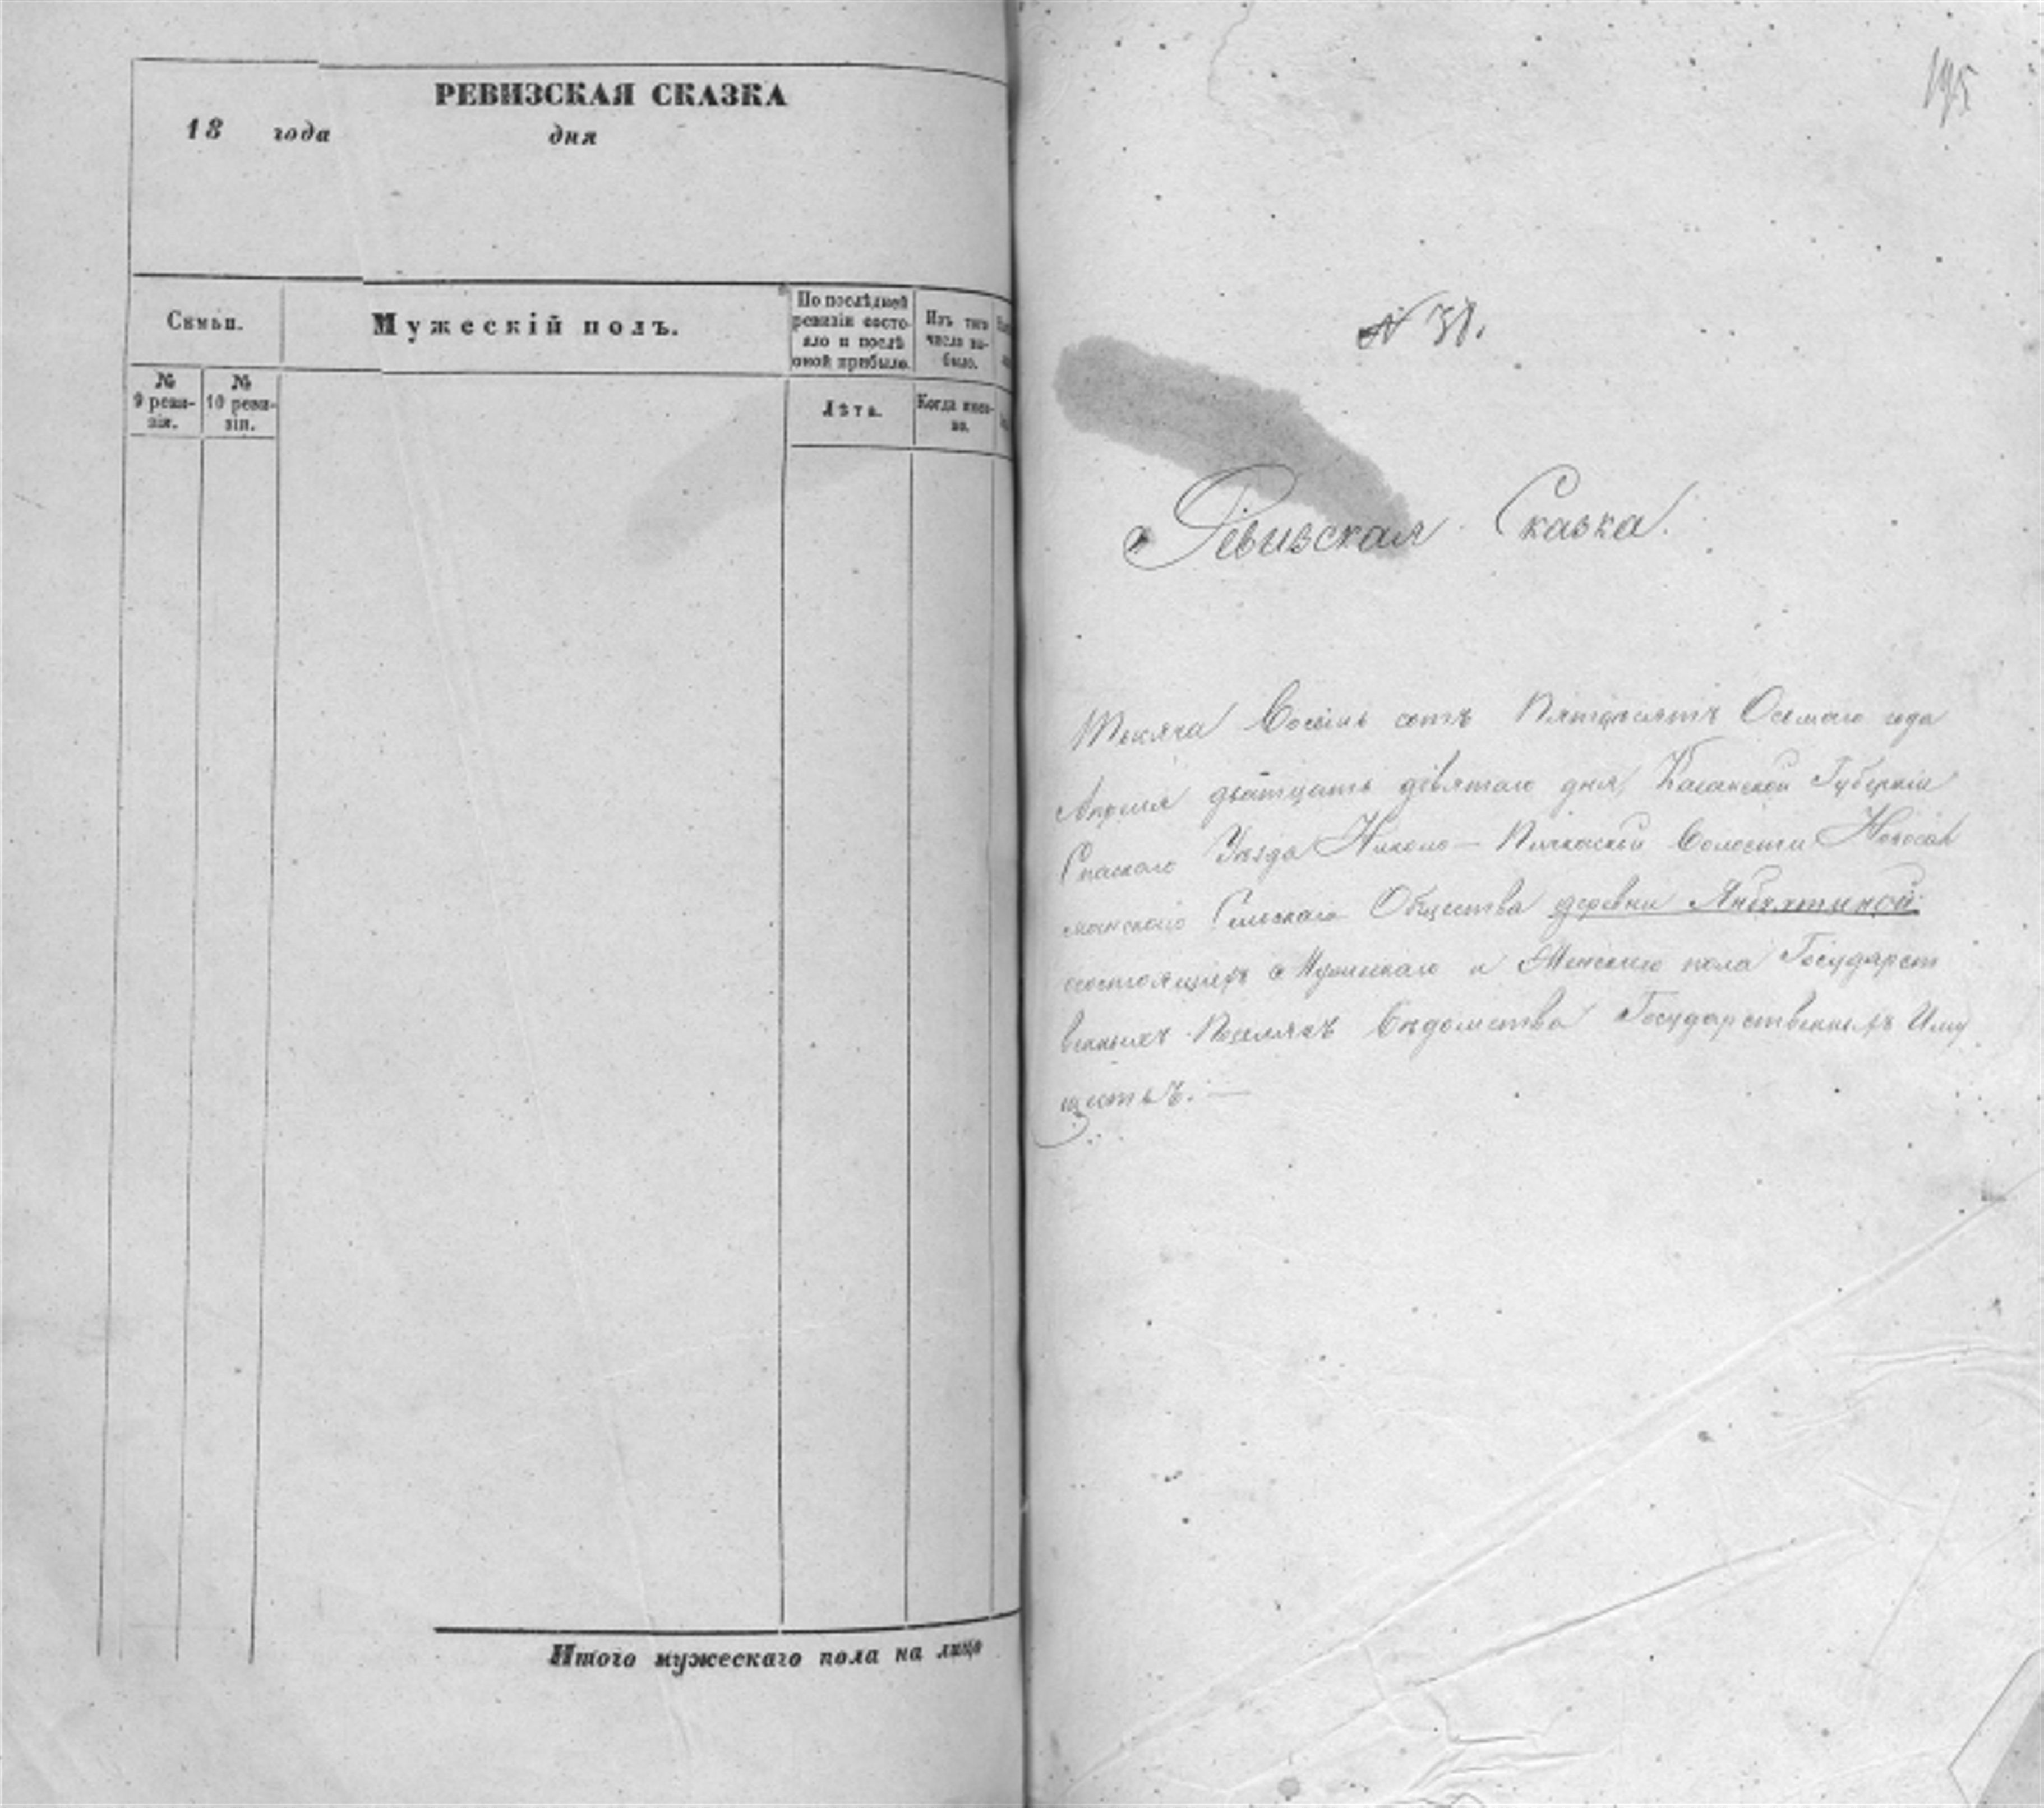 РЕВИЗСКАЯ СКАЗКА
18 года дня
Семьи.
Мужескій полъ.
По послѣдней
ревизіи состо-
яло и послѣ
оной прибыло.
Изъ того
числа вы-
было.
№
9 реви-
зіи.
№
10 реви-
зіи.
Лѣта.
Когда имен-
но.
Итого мужескаго пола на лицо
195
№ 38.
Ревизская Сказка.
Тысяча Восемь сотъ Пятдесятъ Осмаго года
Апреля дватцать девятаго дня, Казанской Губерніи
Спаскаго Уѣзда Николо-Пичкаской Волости Новосал
манскаго Сельскаго Общества деревни Янбухтиной
состоящихъ Мужескаго и Женскаго пола Государст
венныхъ Вѣдомства Государственныхъ Иму
ществъ.—